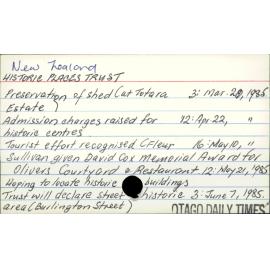 New Zealand
HISTORIC PLACES TRUST
Preservation of shed (at Totara 3: Mar. 28, 1985
Estate)
Admission charges raised for 12: Apr 22, "
historic centres
Tourist effort recognised (Fleur 16: May 10, "
Sullivan given David Cox Memorial Award for
Olivers Courtyard & Restaurant 12: May 21, 1985
Hoping to locate historic buildings
Trust will declare street historic 3: June 7, 1985.
area (Burlington Street)
OTAGO DAILY TIMES